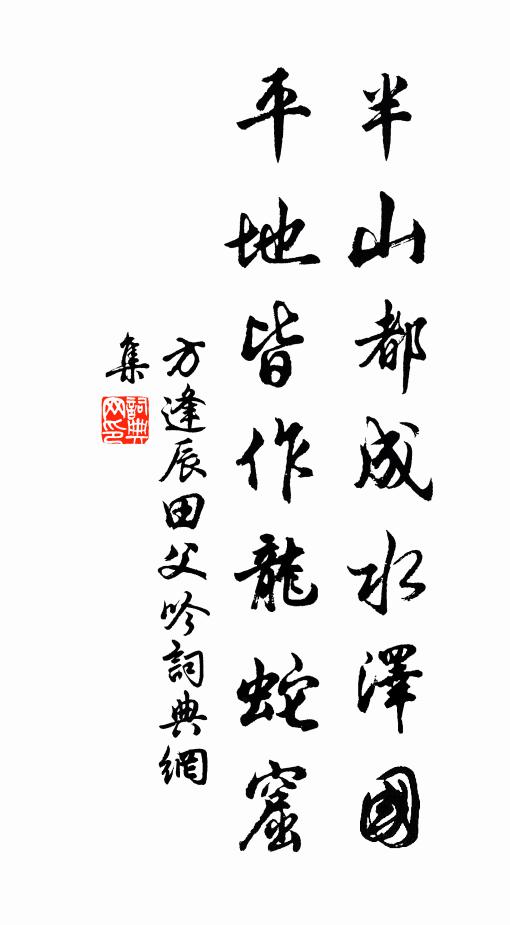 半山都成水澤國
平地皆作龍蛇窟
方逢辰田父吟詞典網
集
詞典
网印